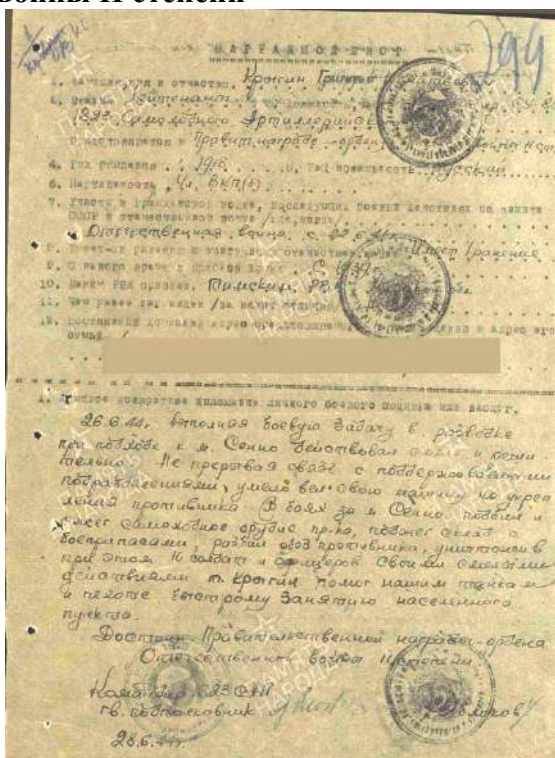 войны II степени
299
НАГРАДНОЙ ЛИСТ
1. и отчество. Крыгин
2. Звание Лейтенант
1823 Самоходного Артиллерийск
Представляется к Правит. награде - орден
4. Год рождения 1918 5. Национальность Русский
6. Партийность Чл. ВКП(б)
7. Участие в гражданской войне, последующих боевых действиях по защите
СССР и отечественной войне /где, когда/
Отечественная война с 22.6.41г.
8. Имеет-ли ранения и контузии в отечественной Имеет ранение
9. С какого время в Красной Армии С 1939г.
10. Каким РВК призван. Пинским РВК
11. Чем ранее награжден /за какие отличия/
12. Постоянный домашний адрес и адрес его
семьи
1. Краткое конкретное изложение личного боевого подвига или заслуг.
26.6.44г. Выполняя боевую задачу в разведке
при подходе к м. Сенно действовал смело и реши
тельно. Не прерывая связь с поддерживающими
подразделениями, умело вел свою машину на укреп
ления противника. В боях за м. Сенно подбил и
сжег самоходное орудие пр-ка, поджег склад с
боеприпасами, разбил обоз противника, уничтожив
при этом 10 солдат и офицеров. Своими смелыми
действиями т. Крыгин помог нашим танкам
и пехоте быстрому занятию населенного
пункта.
Достоин Правительственной награды - ордена
Отечественной войны II степени
Командир САП
гв. подполковник
28.6.44г.